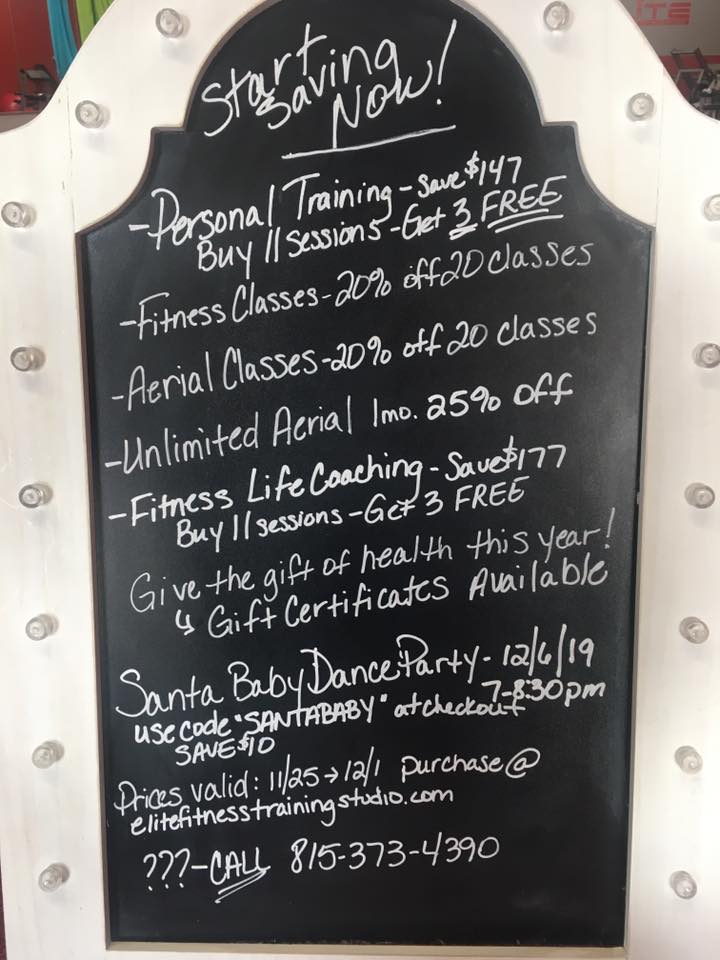 ITE
Start
Saving
Now!
-Personal Training - save $147
Buy 11 sessions - Get 3 FREE
-Fitness Classes - 20% off 20 classes
-Aerial Classes - 20% off 20 classes
-Unlimited Aerial 1mo. 25% off
-Fitness Life Coaching - Save $177
Buy 11 sessions - Get 3 FREE
Give the gift of health this year!
↳ Gift Certificates Available
Santa Baby Dance Party - 12/6/19
7-8:30pm
use code "SANTABABY" at checkout
SAVE $10
Prices valid: 11/25 → 12/1 purchase @
elitefitnesstrainingstudio.com
???-CALL 815-373-4390